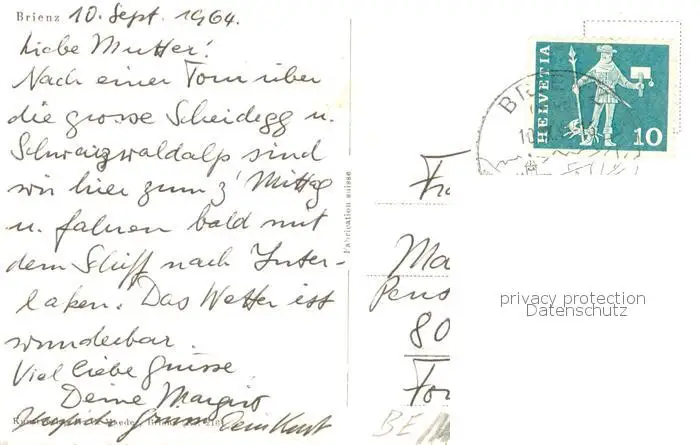 Brienz 10. Sept. 1964.
Liebe Mutter!
Nach einer Tour über
die grosse Scheidegg u.
Schwarzwaldalp sind
wir hier zum z' Mittag
u. fahren bald mit
dem Schiff nach Inter-
laken. Das Wetter ist
wunderbar.
Viel liebe Grüsse
Deine Margrit
Herzliche Grüsse Dein Kurt
Fabrication suisse
HELVETIA
10
Fr
Ma
Pens
80
BE
privacy protection
Datenschutz